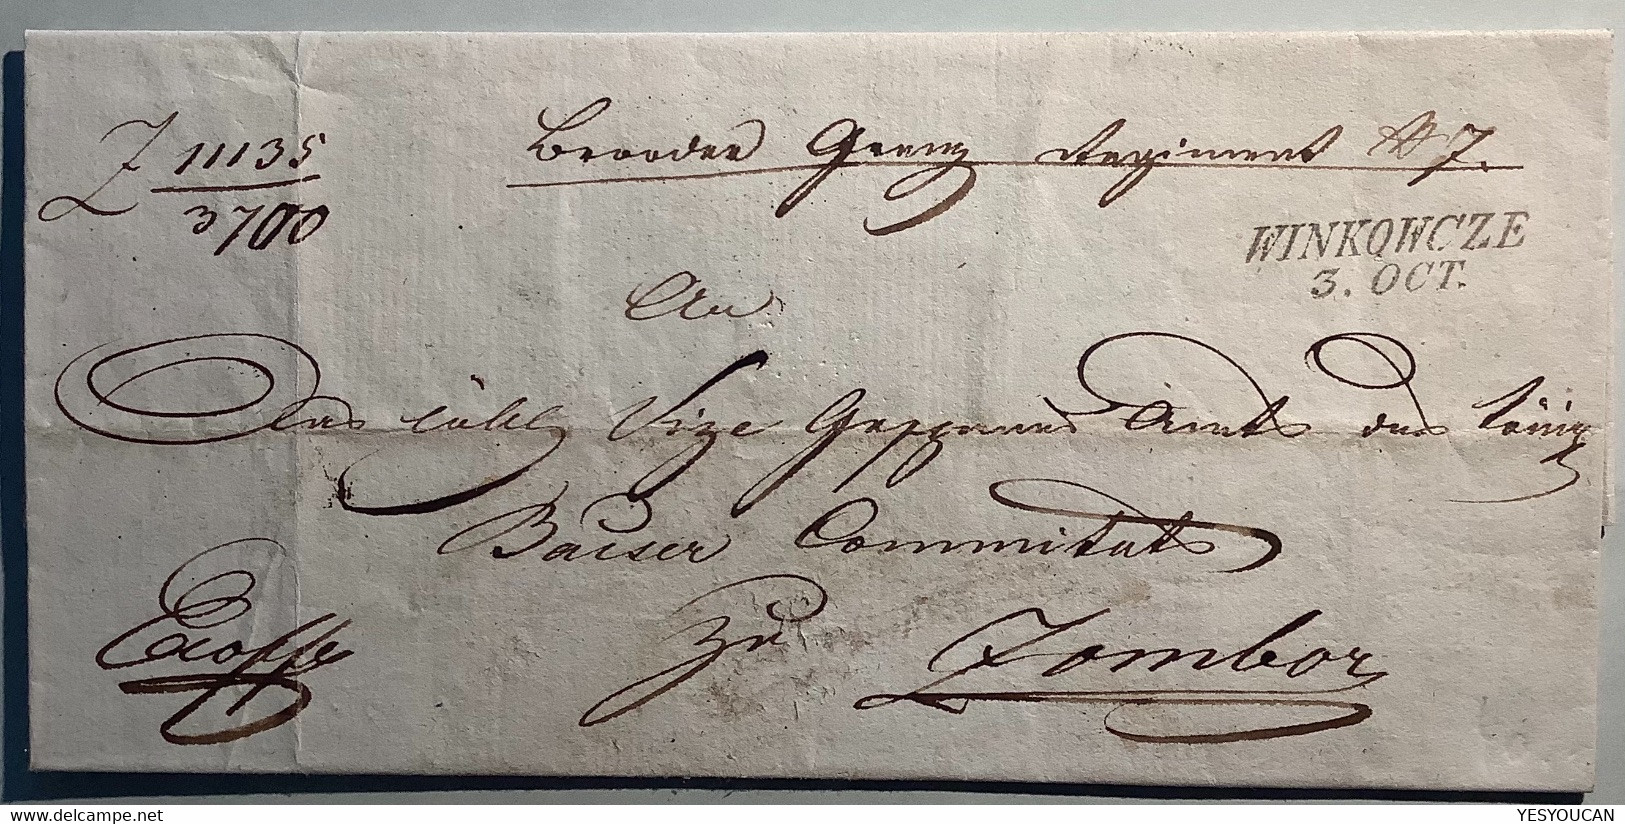 Z 11135
3700
Brooder Grenz Regiment No 7.
WINKOWCZE
3. OCT.
An
Das löbl Vize Gespanns Amts des König
Bacser Commitats
Exoffo
zu Zombor
YESYOUCAN